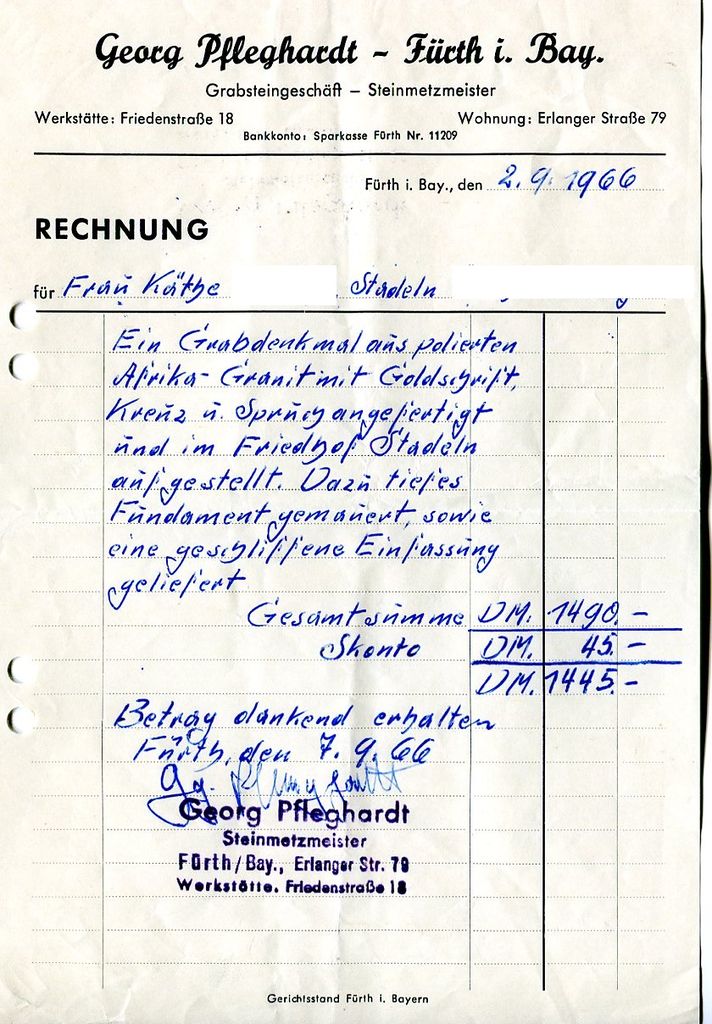 Georg Pfleghardt – Fürth i. Bay.
Grabsteingeschäft – Steinmetzmeister
Werkstätte: Friedenstraße 18 Wohnung: Erlanger Straße 79
Bankkonto: Sparkasse Fürth Nr. 11209
Fürth i. Bay., den 2.9.1966
RECHNUNG
für Frau Käthe , Stadeln
Ein Grabdenkmal aus polierten
Afrika-Granit mit Goldschrift,
Kreuz u. Spruch angefertigt
und im Friedhof Stadeln
aufgestellt. Dazu tiefes
Fundament gemauert, sowie
eine geschliffene Einfassung
geliefert
Gesamtsumme DM. 1490.-
Skonto DM. 45.-
DM. 1445.-
Betrag dankend erhalten
Fürth, den 7.9.66
Gg. Pfleghardt
Georg Pfleghardt
Steinmetzmeister
Fürth/Bay., Erlanger Str. 79
Werkstätte. Friedenstraße 18
Gerichtsstand Fürth i. Bayern